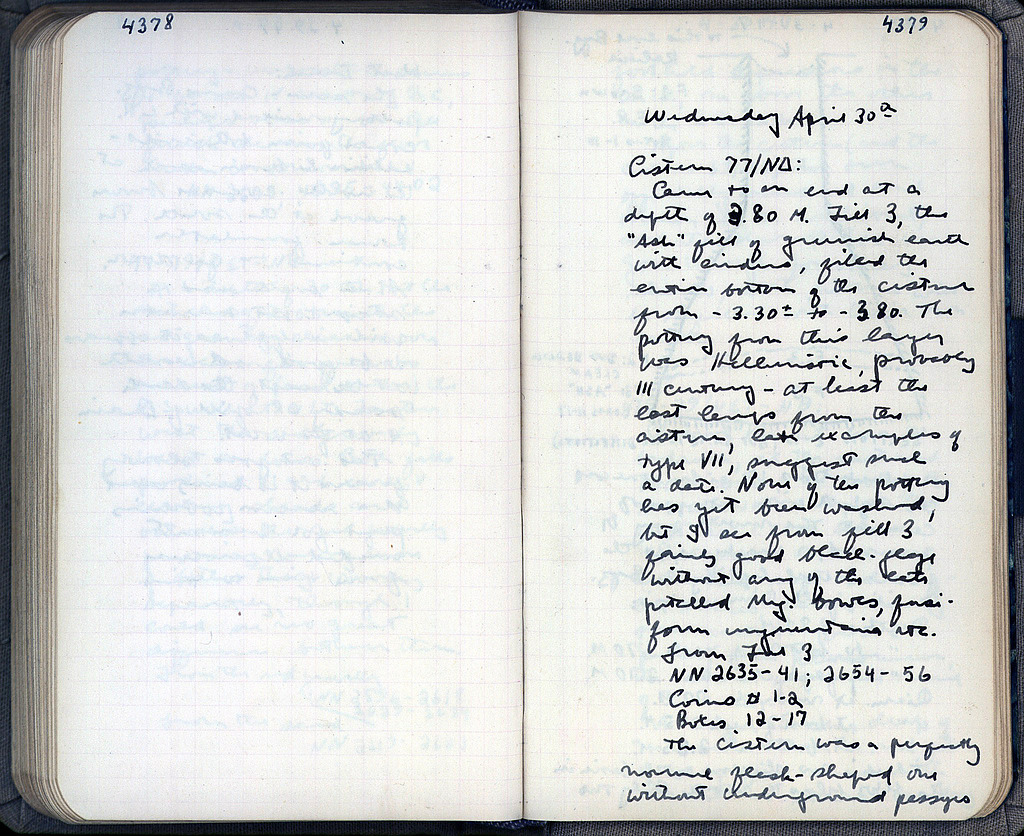 4378
4379
Wednesday April 30th
Cistern 77/NΔ:
Came to an end at a
depth of 3.80 M. Fill 3, the
"Ash" fill of greenish earth
with cinders, filled the
entire bottom of the cistern
from - 3.30± to - 3.80. The
pottery from this layer
was Hellenistic, probably
III century - at least the
last lamps from the
cistern, late examples of
type VII, suggest such
a date. None of the pottery
has yet been washed,
but I see from fill 3
fairly good black-glaze
without any of the late
Meg. bowls, fusi-
form unguentaria etc.
From Fill 3
NN 2635-41; 2654-56
Coins # 1-2
Botes 12-17
The cistern was a perfectly
normal flask-shaped one
without underground passages